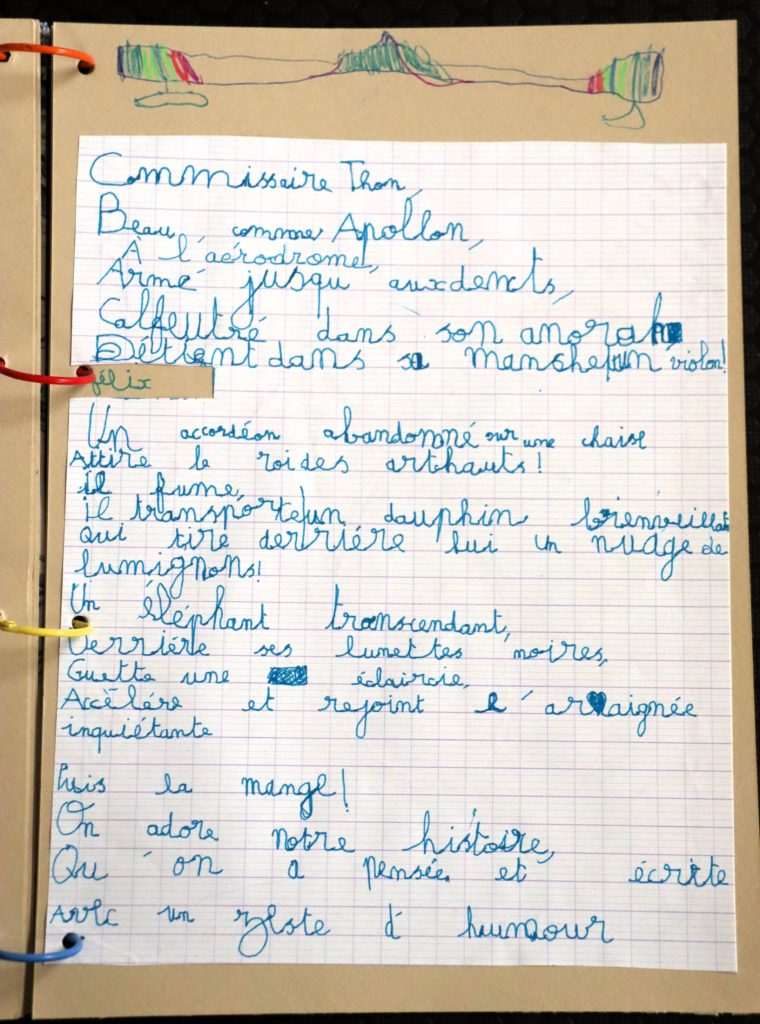 Commissaire Thon,
Beau, comme Apollon,
À l'aérodrome,
Armé jusqu'aux dencts,
Calfeutré dans son anorak
Détient dans sa manche un violon!
félix
Un accordéon abandonné sur une chaise
Attire le roi des arthauts!
il fume,
il transporte un dauphin bienveillant
qui tire derrière lui un nuage de
lumignons!
Un éléphant transcendant,
Derrière ses lunettes noires,
Guette une éclaircie,
Accèlére et rejoint l'araignée
inquiétante
Puis la mange!
On adore notre histoire,
Qu'on a pensée et écrite
avec un zeste d'humour